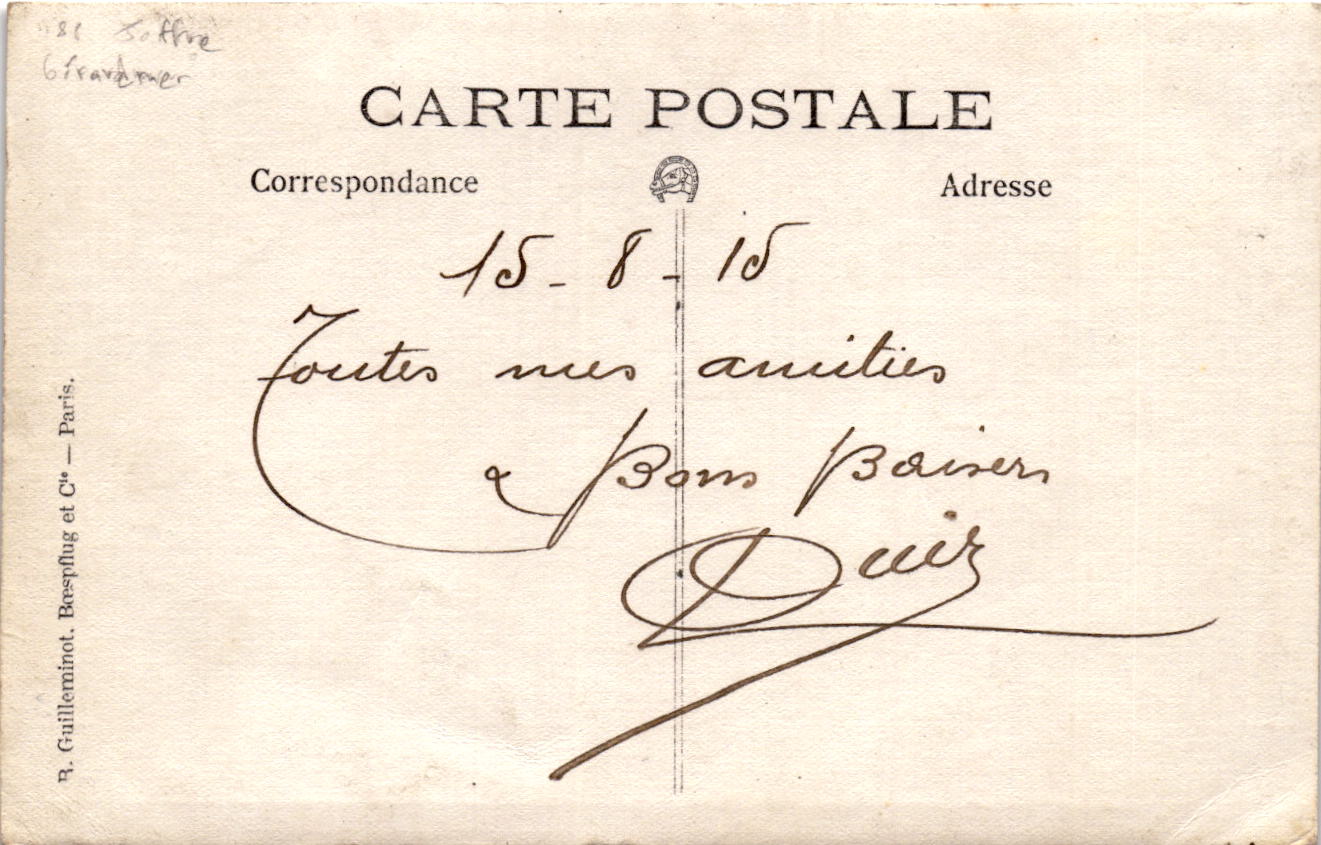 CARTE POSTALE
Correspondance
Adresse
15 - 8 - 15
Toutes mes amitiés
& Bons Baisers
R. Guilleminot, Bœspflug et Cie — Paris.